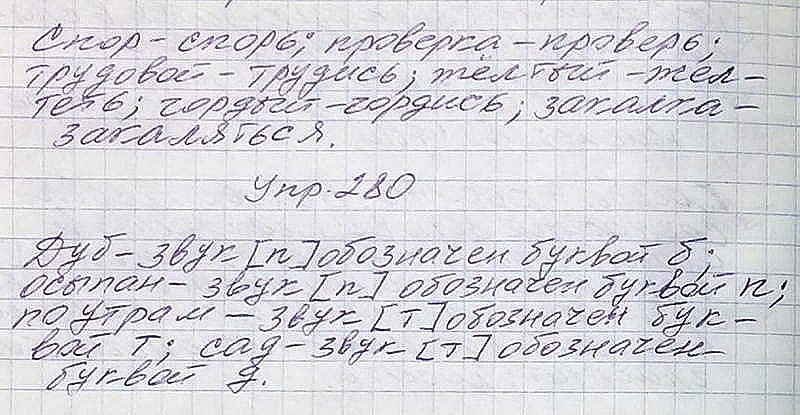 Спор - спорь; проверка - проверь;
трудовой - трудись; жёлтый - жел-
теть; гордый - гордись; закалка -
закаляться.
Упр. 280
Дуб - звук [п] обозначен буквой б;
осыпан - звук [п] обозначен буквой п;
по утрам - звук [т] обозначен бук-
вой т; сад - звук [т] обозначен
буквой д.